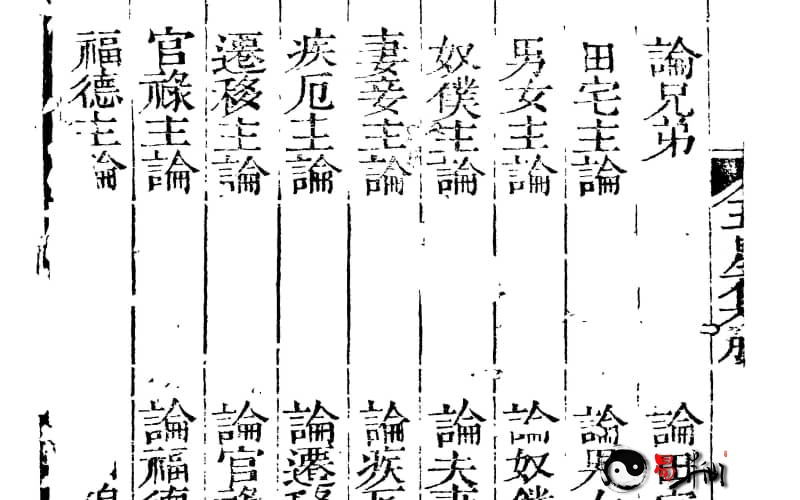 論兄弟
論田宅
田宅主論
論男
男女主論
論奴僕
奴僕主論
論夫妻
妻妾主論
論疾厄
疾厄主論
論遷移
遷移主論
論官祿
官祿主論
論福德
福德主論